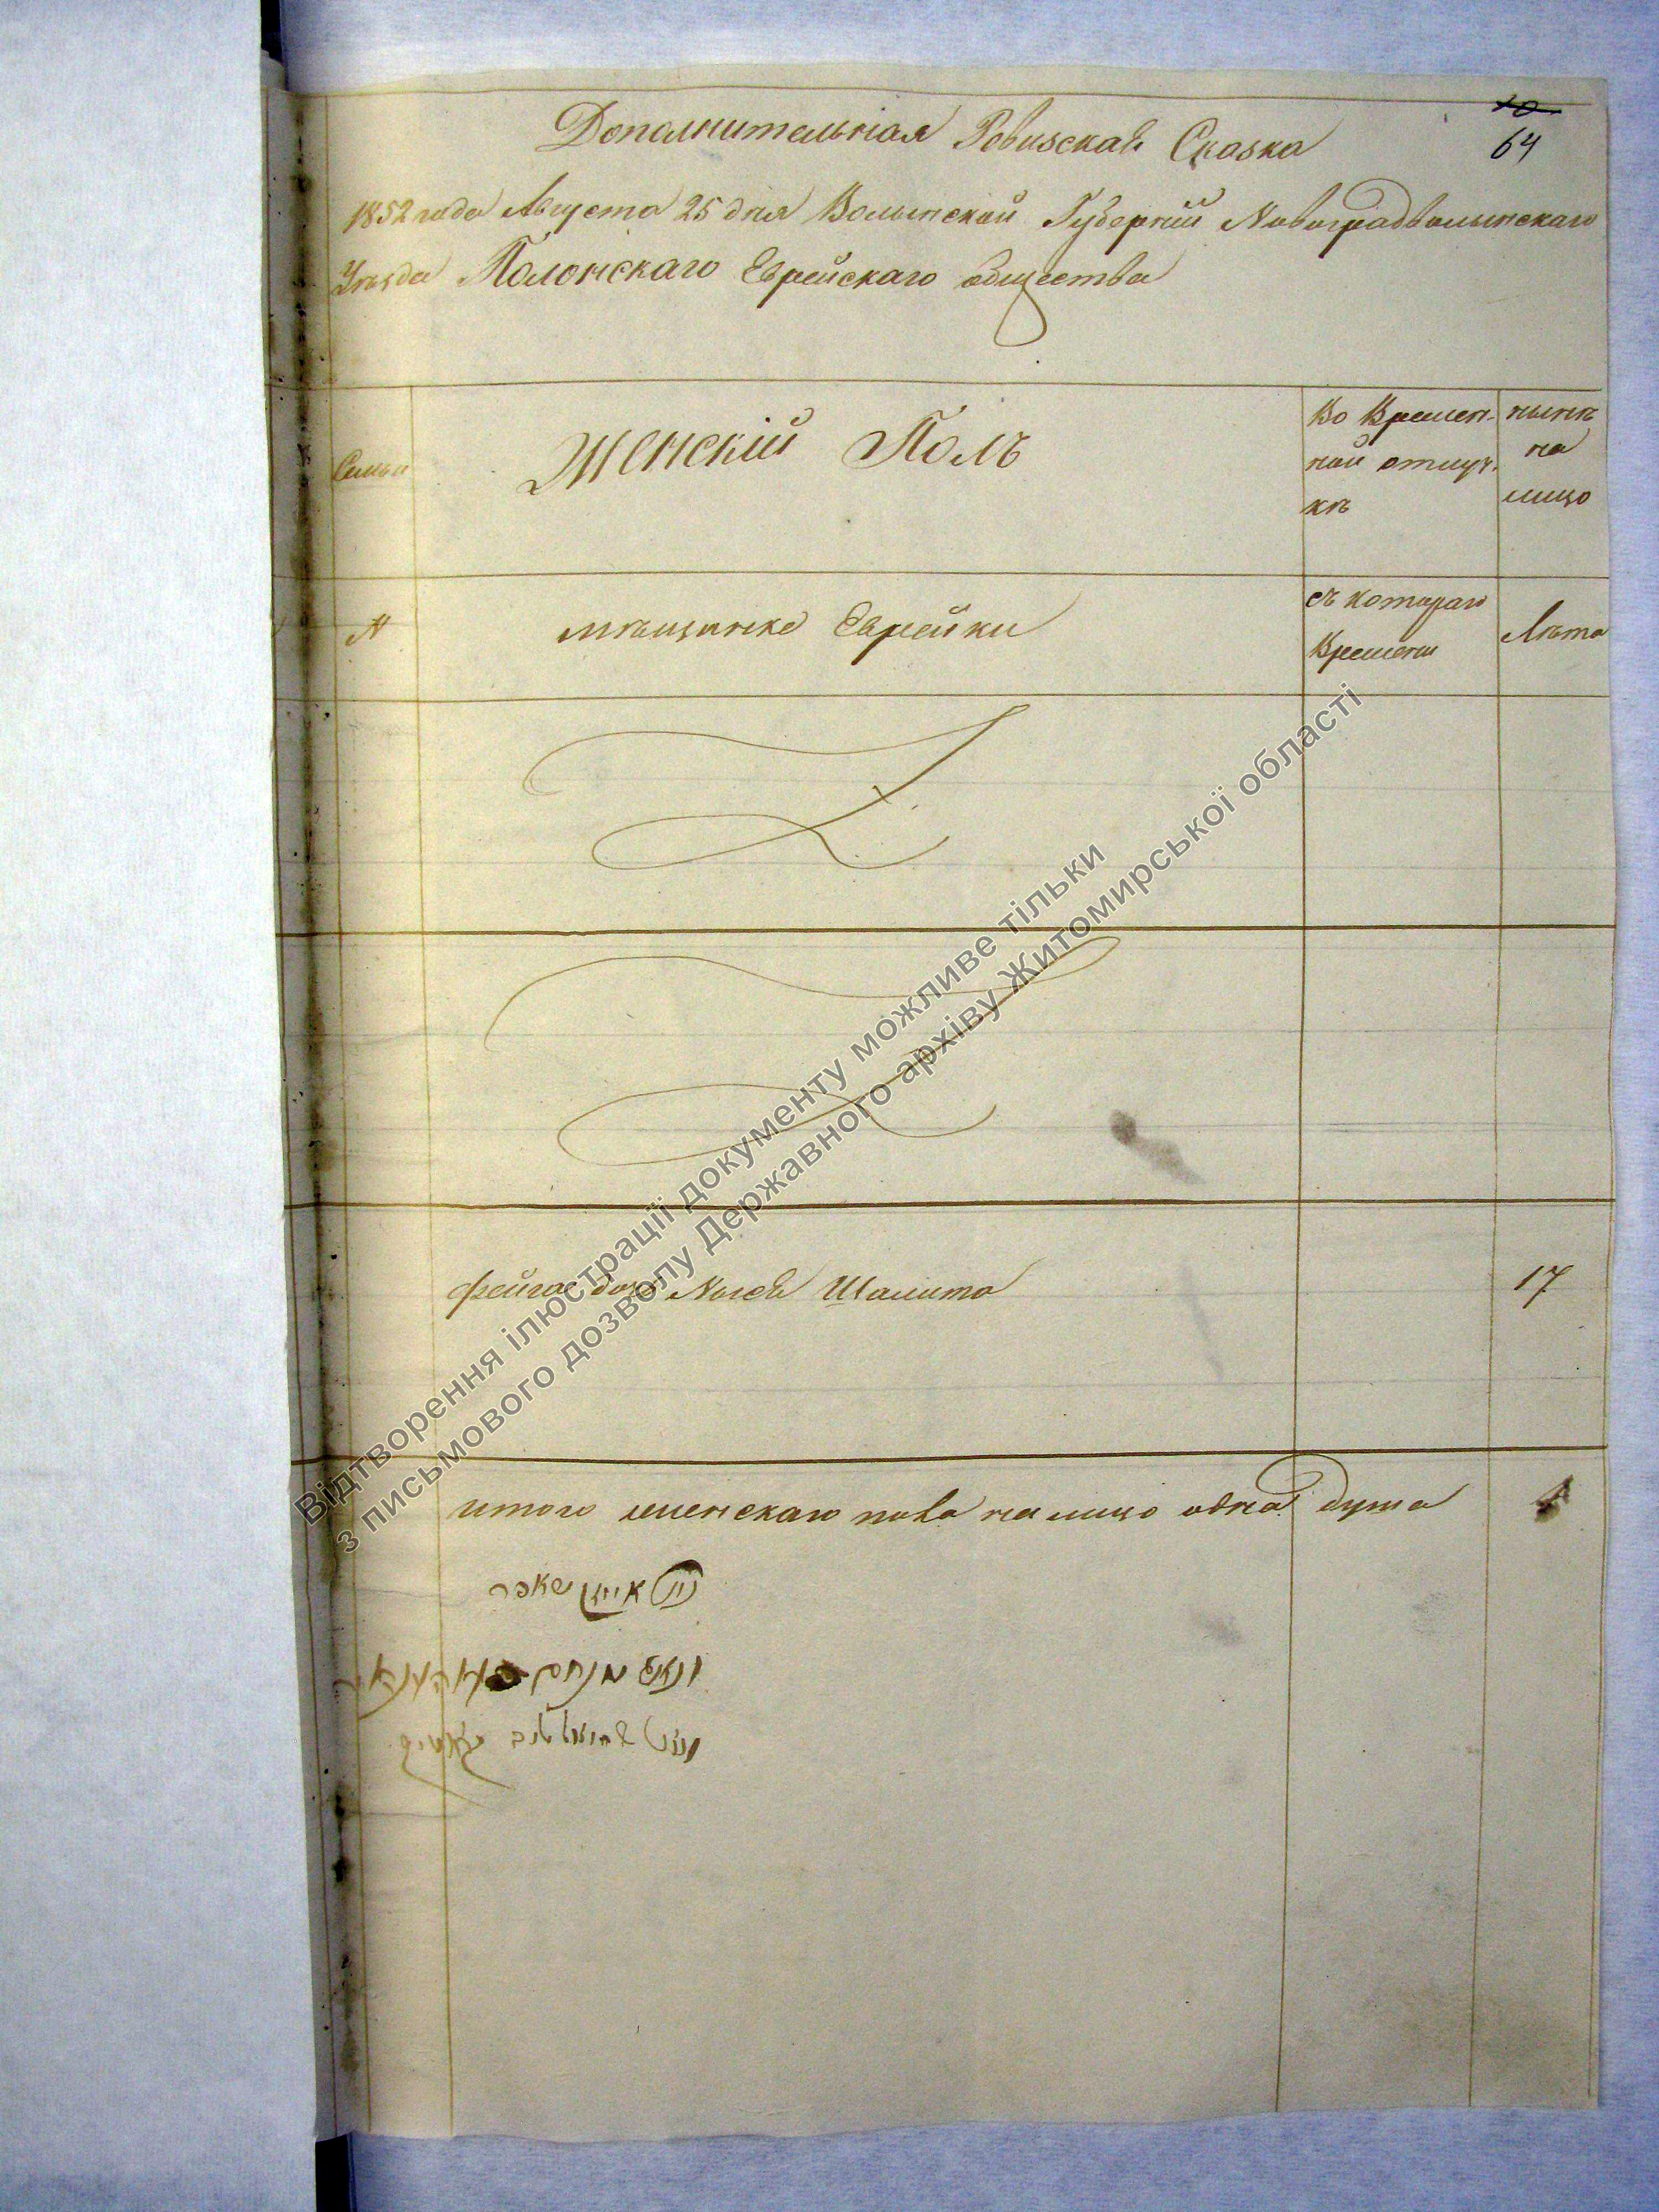 10
64
Дополнительная Ревизская Сказка
1852 года Августа 25 дня Волынской Губерніи Новоградволынскаго
Уѣзда Полонскаго Еврейскаго общества
Семьи
Женскій Полъ
Во Времен-
ной отлуч-
кѣ
нынѣ
на
лицо
N
мѣщанке Еврейки
съ котораго
Времени
Лѣта
Фейга Шалита
17
итого женскаго пола на лицо одна душа
1
Відтворення ілюстрації документу можливе тільки
з письмового дозволу Державного архіву Житомирської області